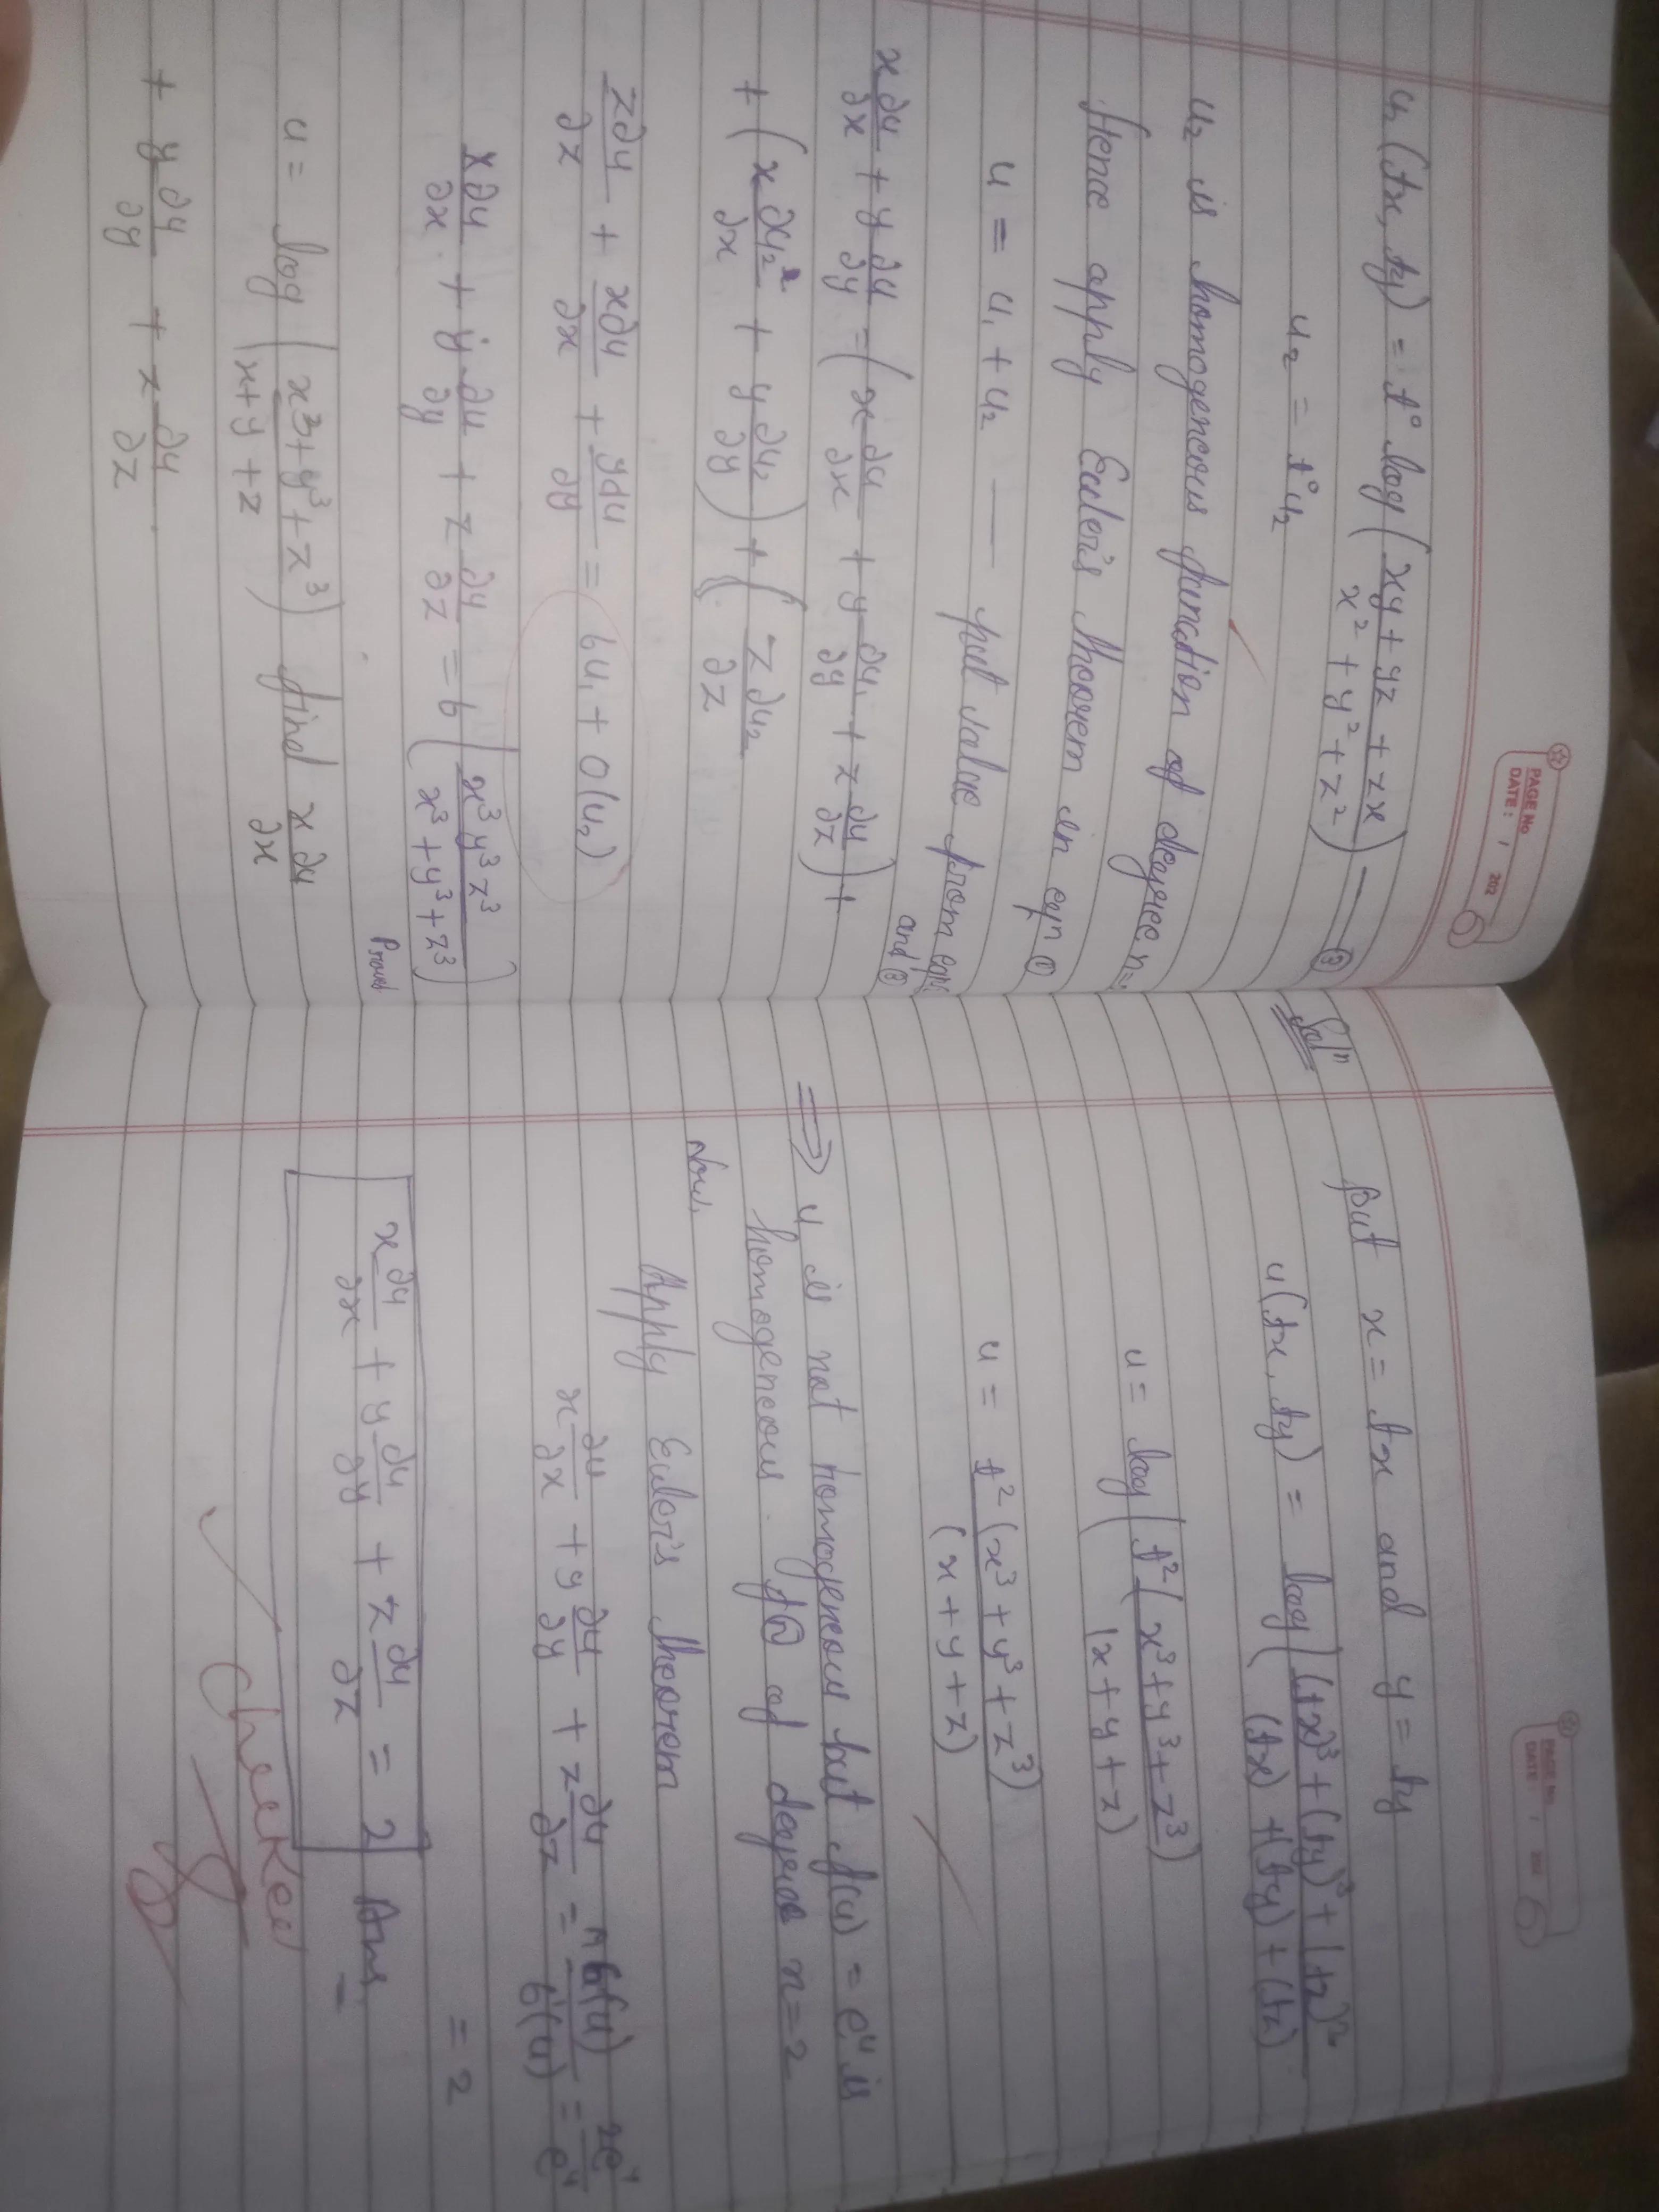 PAGE No
DATE: / 202
u₂(tx, ty) = t⁰ log (xy + yz + zx / x² + y² + z²) — ③
u₂ = t⁰u₂
u₂ is homogeneous function of degree n=
Hence apply Euler's theorem in eqn ①
u = u₁ + u₂ — put value from eqn
and ③
x ∂u/∂x + y ∂u/∂y = (x ∂u/∂x + y ∂u₁/∂y + z ∂u/∂z) +
+ (x ∂u₂/∂x + y ∂u₂/∂y) + (z ∂u₂/∂z
z∂u/∂z + x∂u/∂x + y∂u/∂y = 6u₁ + 0(u₂)
x∂u/∂x + y ∂u/∂y + z ∂u/∂z = 6 (x³y³z³ / x³ + y³ + z³)
Proved
u = log (x³ + y³ + z³ / x + y + z) find x ∂u/∂x
+ y ∂u/∂y + z ∂u/∂z
PAGE No.
DATE / 202
Solⁿ
put x = tx and y = ty
u(tx, ty) = log ((tx)³ + (ty)³ + (tz)³ / (tx) + (ty) + (tz)
u = log (t² (x³ + y³ + z³) / (x + y + z)
u = t² (x³ + y³ + z³) / (x + y + z)
⇒ u is not homogeneous but f(u) = eᵘ is
homogeneous fⓝ of degree n = 2
Now,
Apply Euler's theorem
x ∂u/∂x + y ∂u/∂y + z ∂u/∂z = n f(u) / f'(u) = 2eᵘ / eᵘ
= 2
x ∂u/∂x + y ∂u/∂y + z ∂u/∂z = 2 Ans
Checked